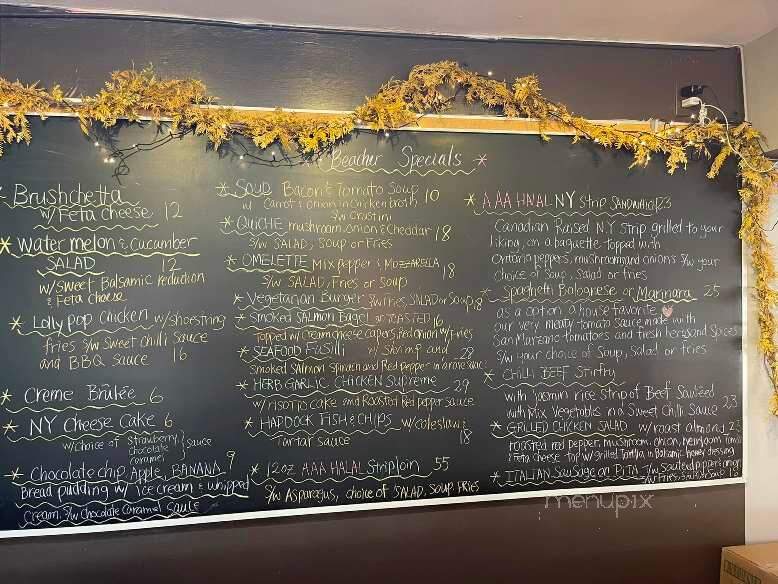 Beacher Specials
Brushchetta
w/ Feta cheese 12
Water melon & Cucumber
SALAD 12
w/ Sweet Balsamic Reduction
& Feta cheese
Lolly pop chicken w/ shoestring
fries s/w Sweet Chilli Sauce
and BBQ Sauce 16
Creme Brûlée 6
NY Cheese Cake 6
w/ choice of Strawberry,
chocolate
caramel
sauce
Chocolate chip, Apple, BANANA 9
Bread pudding w/ ice cream & whipped
cream. s/w Chocolate Caramel sauce
SOUP Bacon & Tomato Soup
w/ Carrot & onion in Chicken broth 10
s/w Crustini
QUICHE mushroom onion & Cheddar
s/w SALAD, Soup or Fries 18
OMELETTE Mix pepper & MOZZARELLA
s/w SALAD, Fries or Soup 18
Vegetarian Burger s/w fries, SALAD or Soup 18
Smoked SALMON Bagel or TOASTED 16
Topped w/ Cream cheese capers, Red onion w/ fries
SEAFOOD Fusilli w/ Shrimp and 28
Smoked Salmon Spinach and Red pepper in a rose sauce
HERB GARLIC CHICKEN Supreme 29
w/ risotto cake and Roasted Red pepper sauce
HADDOCK FISH & CHIPS w/ coleslaw &
Tartar sauce 18
12oz AAA HALAL Striploin 55
S/w Asparagus, choice of SALAD, Soup, Fries
AAA HALAL NY Strip SANDWHICH 23
Canadian Raised NY Strip grilled to your
liking, on a baguette topped with
Ontario peppers, mushroom and onions s/w your
choice of Soup, Salad or fries
Spaghetti Bolognese or Marinara 25
as a option a house favorite
our very meaty-tomato Sauce made with
San Marzano tomatoes and fresh herbs and Spices
s/w your choice of Soup, Salad or fries
CHILLI BEEF Stirfry
with Jasmin rice Strip of Beef Sautéed
with Mix Vegetables in a Sweet Chilli Sauce 23
GRILLED CHICKEN SALAD w/ roast almond 23
roasted red pepper, mushroom, onion, heirloom tomato
& Feta cheese top w/ grilled Tortilla, in Balsamic honey dressing
ITALIAN Sausage on PITA s/w sauteed pepper & onion
s/w Fries, SALAD, Soup 18
menupix